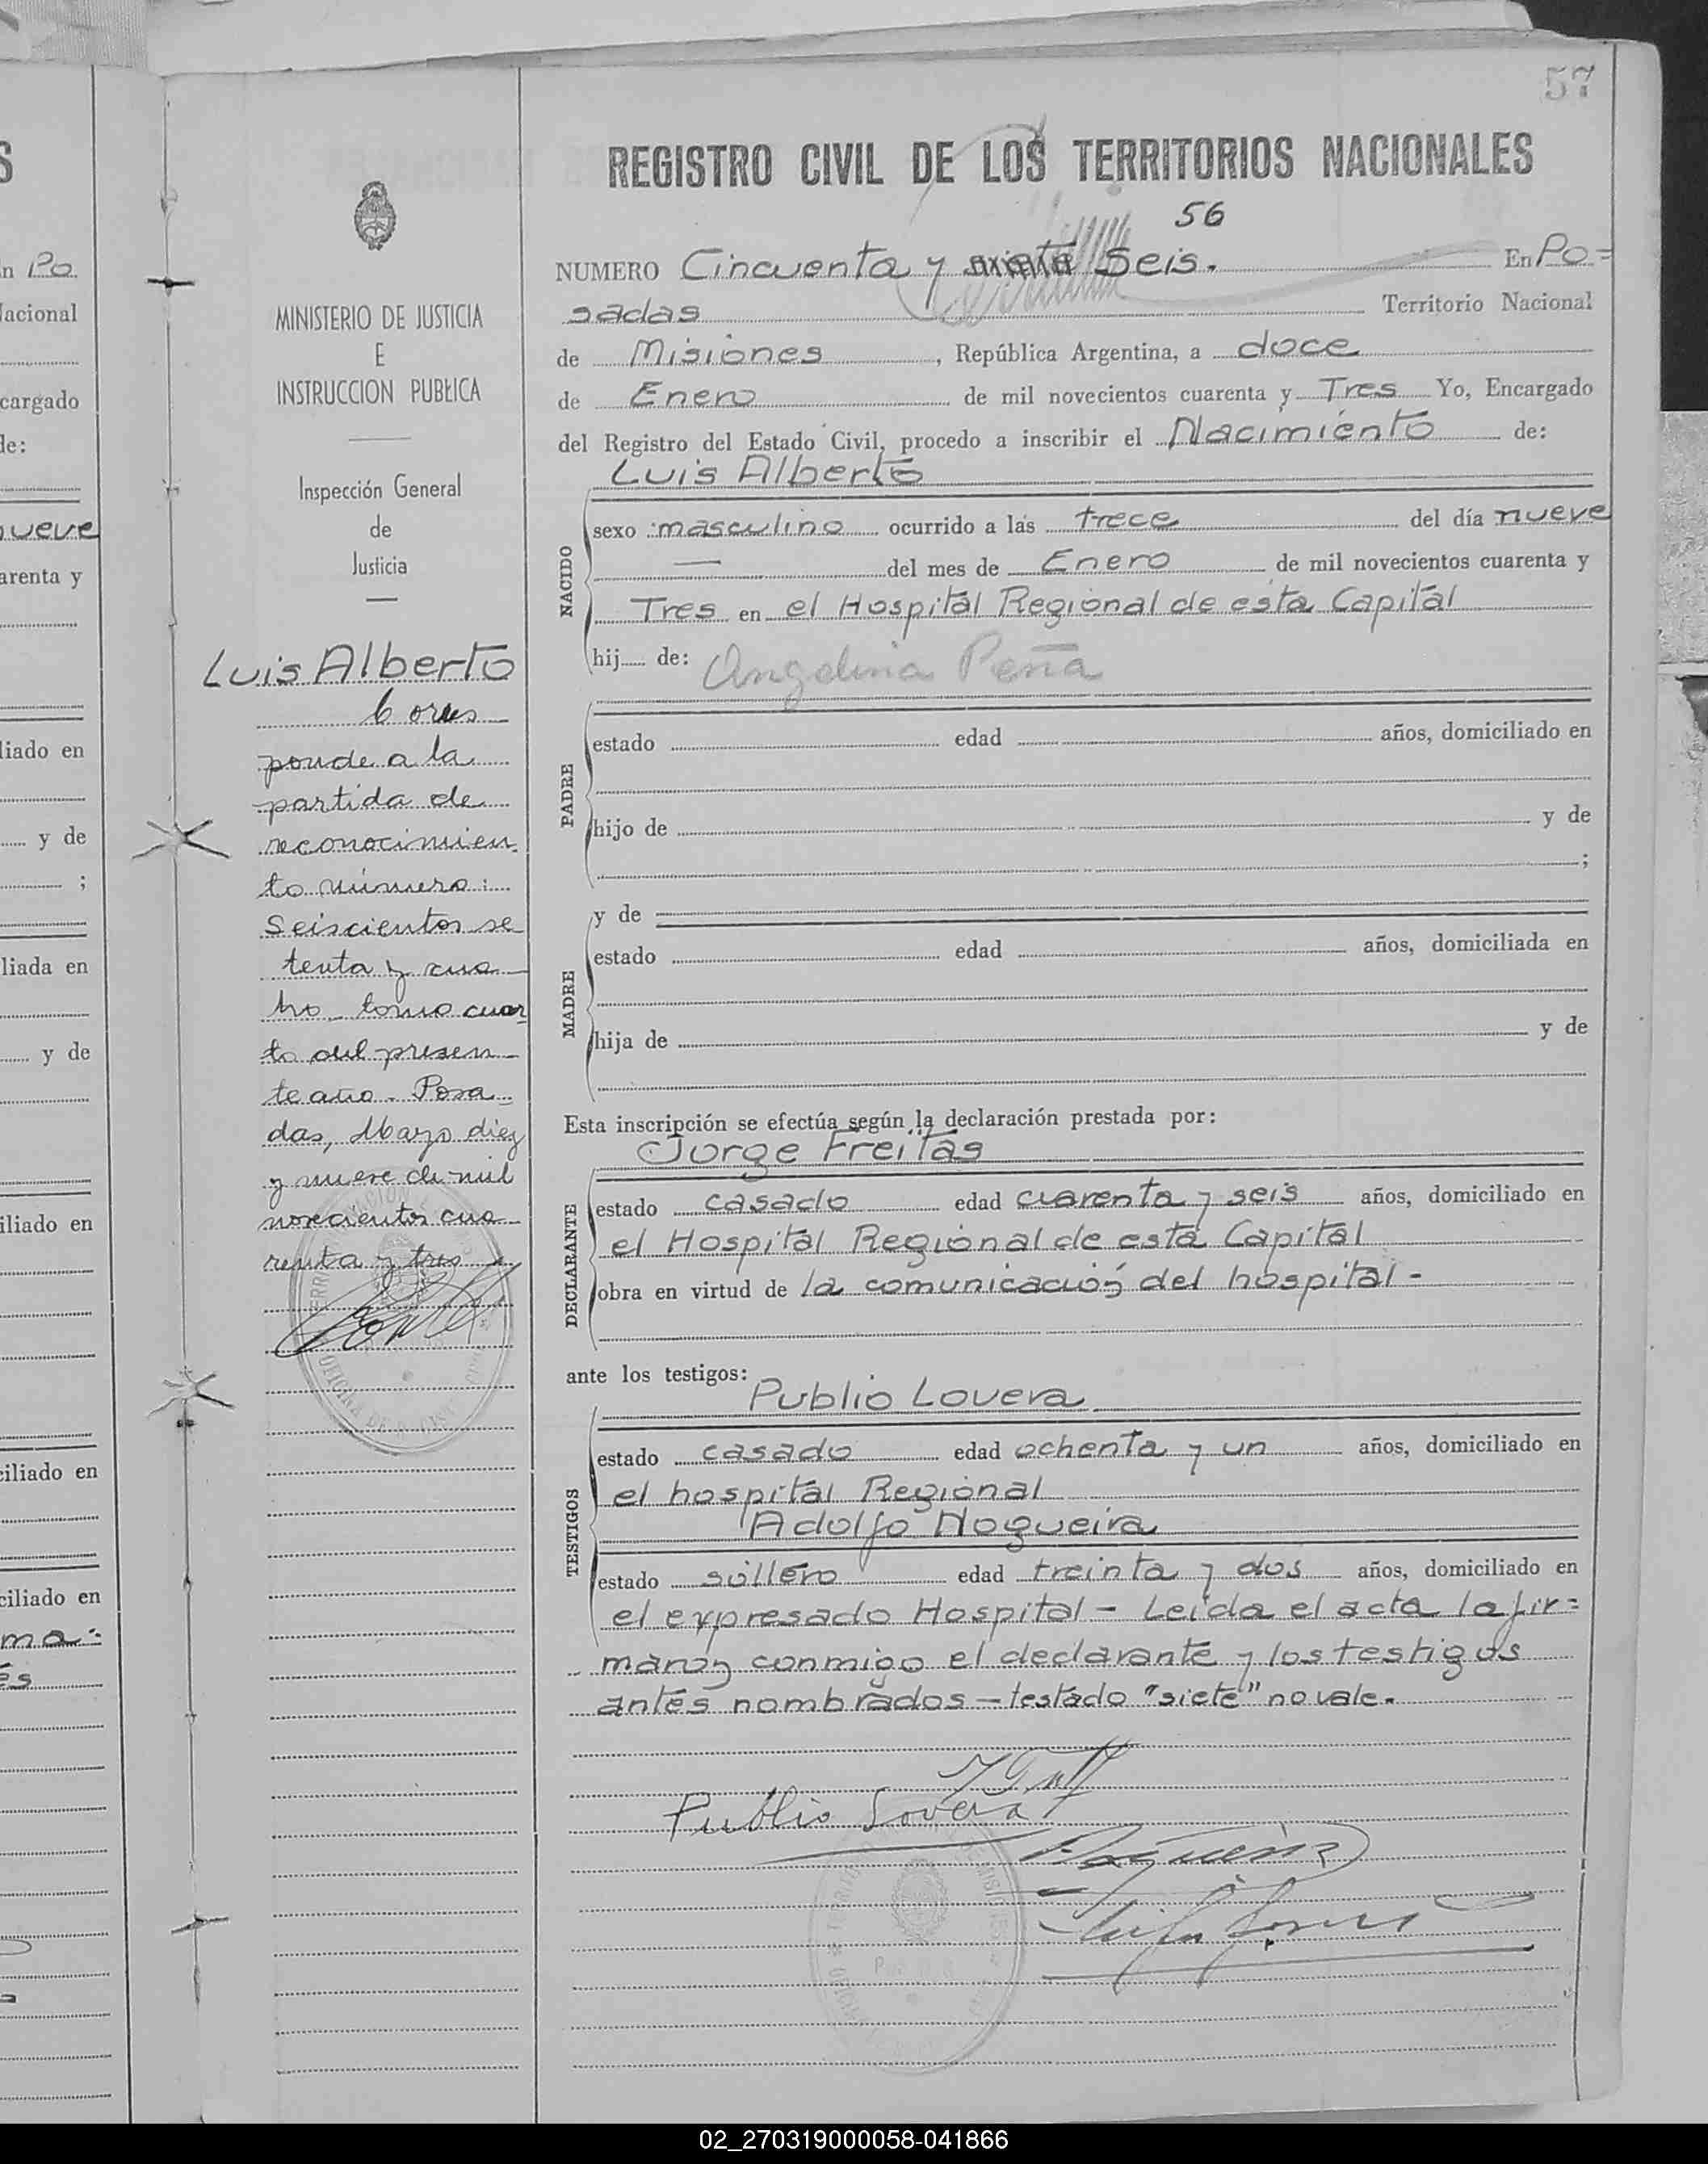 57
REGISTRO CIVIL DE LOS TERRITORIOS NACIONALES
56
NUMERO Cincuenta y siete Seis. En Po=
sadas Territorio Nacional
de Misiones, República Argentina, a doce
de Enero de mil novecientos cuarenta y Tres Yo, Encargado
del Registro del Estado Civil, procedo a inscribir el Nacimiento de:
Luis Alberto
NACIDO
sexo masculino ocurrido a las trece del día nueve
— del mes de Enero de mil novecientos cuarenta y
Tres en el Hospital Regional de esta Capital
hij de: Angelina Peña
PADRE
estado edad años, domiciliado en
hijo de y de
;
y de
MADRE
estado edad años, domiciliada en
hija de y de
Esta inscripción se efectúa según la declaración prestada por:
Jorge Freitas
DECLARANTE
estado casado edad cuarenta y seis años, domiciliado en
el Hospital Regional de esta Capital
obra en virtud de la comunicación del hospital -
ante los testigos:
Publio Lovera
TESTIGOS
estado casado edad ochenta y un años, domiciliado en
el hospital Regional
Adolfo Nogueira
estado soltero edad treinta y dos años, domiciliado en
el expresado Hospital - Leída el acta la fir=
maron conmigo el declarante y los testigos
antes nombrados - testado "siete" no vale.
Publio Lovera
Nogueira
MINISTERIO DE JUSTICIA
E
INSTRUCCION PUBLICA
Inspección General
de
Justicia
Luis Alberto
Corres
ponde a la
partida de
reconocimien
to número:
Seiscientos se
tenta y cua
tro tomo cuar
to del presen
te año. Posa
das, Mayo diez
y nueve de mil
novecientos cua
renta y tres
n Po
Nacional
cargado
de:
nueve
arenta y
liado en
y de
;
liada en
y de
iliado en
ciliado en
ciliado en
ma=
és
02_270319000058-041866